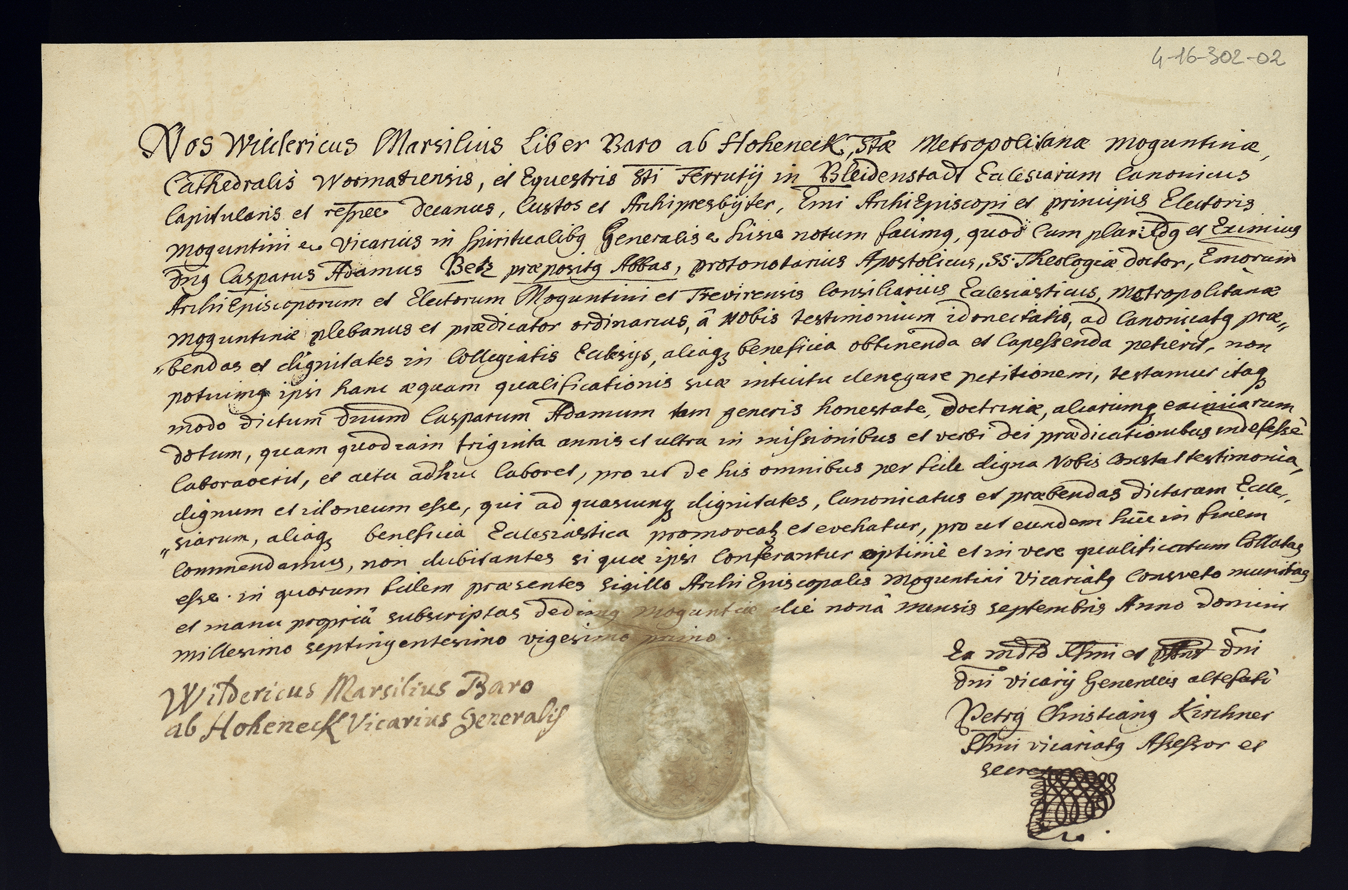 4-16-302-02
Nos Wildericus Marsilius Liber Baro ab Hoheneck, Stæ Metropolitanæ Moguntinæ,
Cathedralis Wormatiensis, et Equestris Sti Ferrutij in Bleidenstadt Ecclesiarum Canonicus
Capitularis et respee Decanus, Custos et Archipresbyter, Emi ArchiEpiscopi et principis Electoris
Moguntini &c Vicarius in spiritualibq Generalis &c hisce notum facimq, quod cum plur: Rdq et Eximius
Dnq Casparus Adamus Betz præpositq Abbas, protonotarius Apostolicus, SS: Theologiæ doctor, Emorum
ArchiEpiscoporum et Electorum Moguntini et Trevirensis Consiliarius Ecclesiasticus, Metropolitanæ
Moguntinæ plebanus et prædicator ordinarius, â Nobis testimonium idoneitatis, ad Canonicatq præ„
„bendas et dignitates in Collegiatis Ecclesijs, aliaq beneficia obtinenda et capessenda petierit, non
potuimq ipsi hanc æquam qualificationis suæ intuitu denegare petitionem, testamur itaq
modo dictum Dnum Casparum Adamum tam generis honestate, doctrinæ, aliarumq
dotum, quam quod iam triginta annis et ultra in missionibus et verbi dei prædicationibus indefessè
laboraverit, et actu adhuc laboret, pro ut de his omnibus per fide digna Nobis constat testimonia,
dignum et idoneum esse, qui ad quascunq dignitates, Canonicatus et præbendas dictarum Eccle„
„siarum, aliaq beneficia Ecclesiastica promoveatq et evehatur, pro ut eundem hunc in finem
Commendamus, non dubitantes si quæ ipsi Conferantur optimè et in vere qualificatum Collatas
esse. in quorum fidem præsentes sigillo ArchiEpiscopalis Moguntini Vicariatq Consveto munitas
et manu propriâ subscriptas dedimq Moguntiæ die nonâ mensis septembris Anno Domini
millesimo septingentesimo vigesimo primo.
Wildericus Marsilius Baro
ab Hoheneck Vicarius Generalis
Ex mdto Rmi et Dni
Dni vicarij Generalis altefati
Petrq Christianq Kirchner
Rmi vicariatq Assessor et
secre